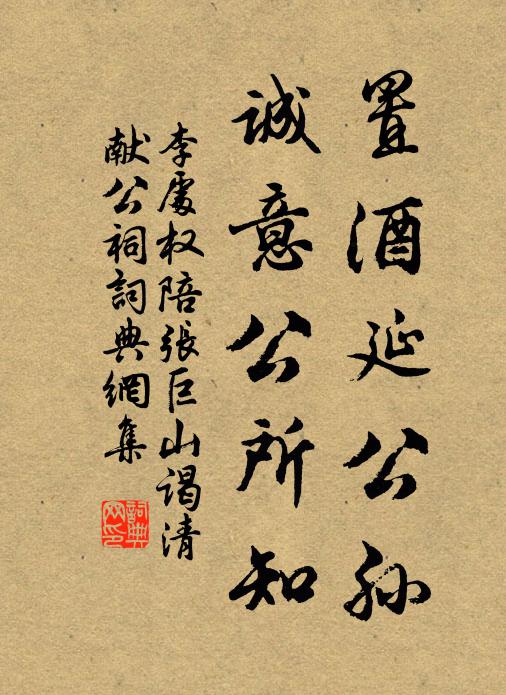 置酒延公孙
诚意公所知
李處权陪張巨山谒清
献公祠詞典網集
詞典
网印